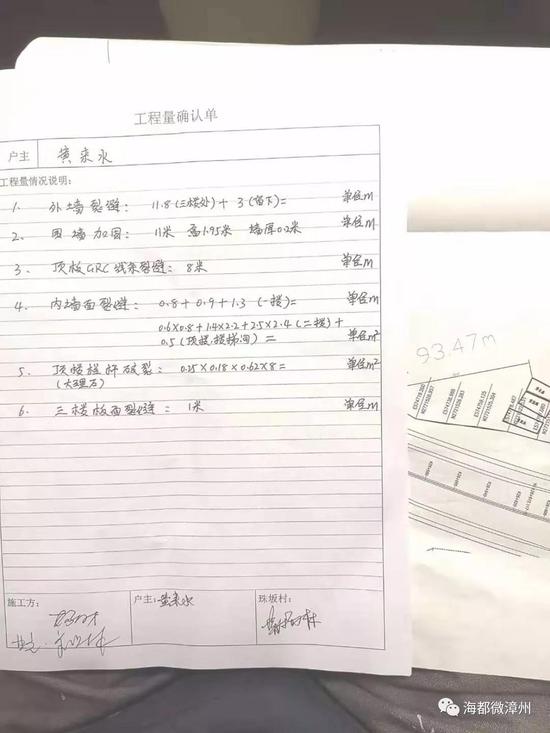 工程量确认单
户主 黄来水
工程量情况说明：
1. 外墙裂避： 11.8(三楼处)+ 3(留下)= 单位m
2. 围墙加固： 11米 高1.95米 墙厚0.2米 单位m
3. 顶板GRC线条裂避： 8米 单位m
4. 内墙面裂避： 0.8+0.9+1.3(一楼)= 单位m
0.6×0.8+1.4×2.2+2.5×2.4(二楼)+ 单位m²
0.5(顶楼,楼梯间)=
5. 顶楼栏杆破裂： 0.25×0.18×0.62×8= 单位m²
(大理石)
6. 三楼板面裂避： 1米 单位m
93.47m
施工方： 户主： 黄来水 珠坂村：
海都微漳州